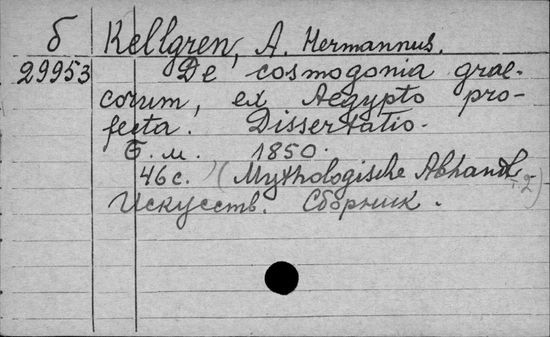 б Kellgren, A. Hermannus.
29953 De cosmogonia grae-
corum, ex Aegypto pro-
fecta. Dissertatio.
Б. м. 1850.
46 с. (Mythologische Abhandl. 2)
Искусств. Сборник.